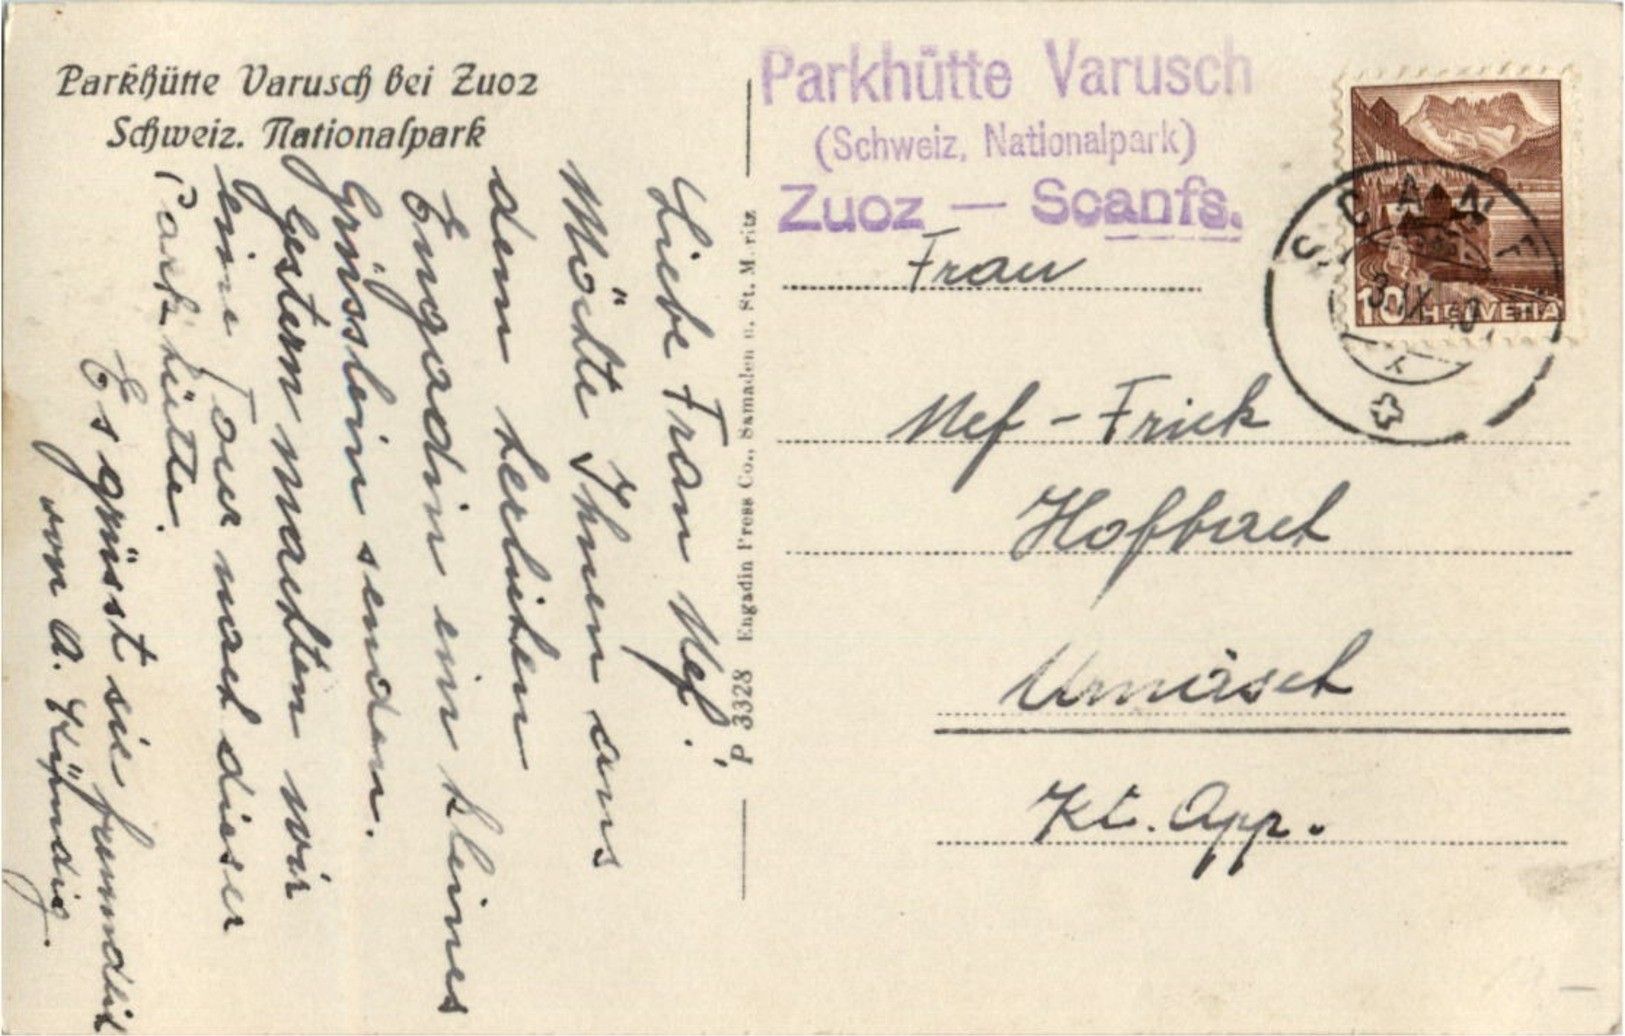 Parkhütte Varusch bei Zuoz
Schweiz. Nationalpark
Liebe Frau Nef!
Möchte Ihnen aus
dem herlichen
Engadin ein kleines
Grüsslein senden.
Gestern machten wir
eine Tour nach dieser
Parkhütte.
Es grüsst sie freundlich
von A. Kündig.
P 3328 Engadin Press Co., Samaden u. St. Moritz
Parkhütte Varusch
(Schweiz. Nationalpark)
Zuoz — Scanfs.
SCANFS
10 HELVETIA
Frau
Nef-Frick
Hofbach
Urnäsch
Kt. App.